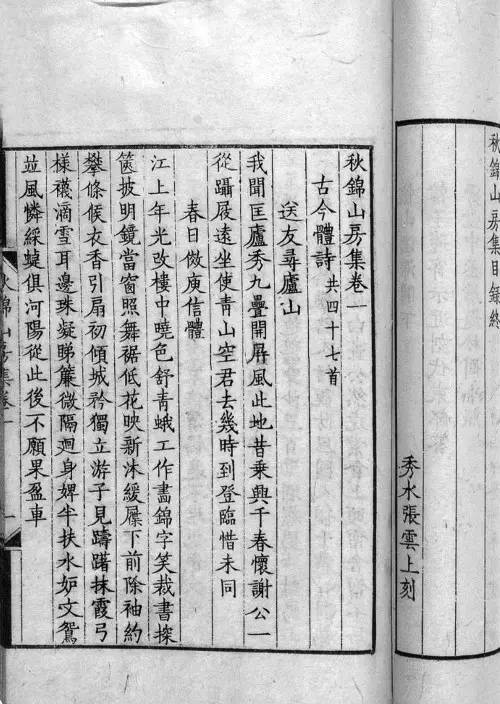 秋錦山房集目錄終
秀水張雲上刻
秋錦山房集卷一
古今體詩共四十七首
送友尋廬山
我聞匡廬秀九疊開屏風此地昔乘興千春懷謝公一
從躡屐遠坐使青山空君去幾時到登臨惜未同
春日倣庾信體
江上年光改樓中曉色舒青蛾工作畫錦字笑裁書探
篋披明鏡當窗照舞裾低花映新沐緩屧下前除袖約
攀條候衣香引扇初傾城矜獨立游子見躊躇抹霞弓
樣襪滴雪耳邊珠凝睇簾微隔迴身婢半扶水妒文鴛
並風憐綵蜨俱河陽從此後不願果盈車
秋錦山房集卷一
一